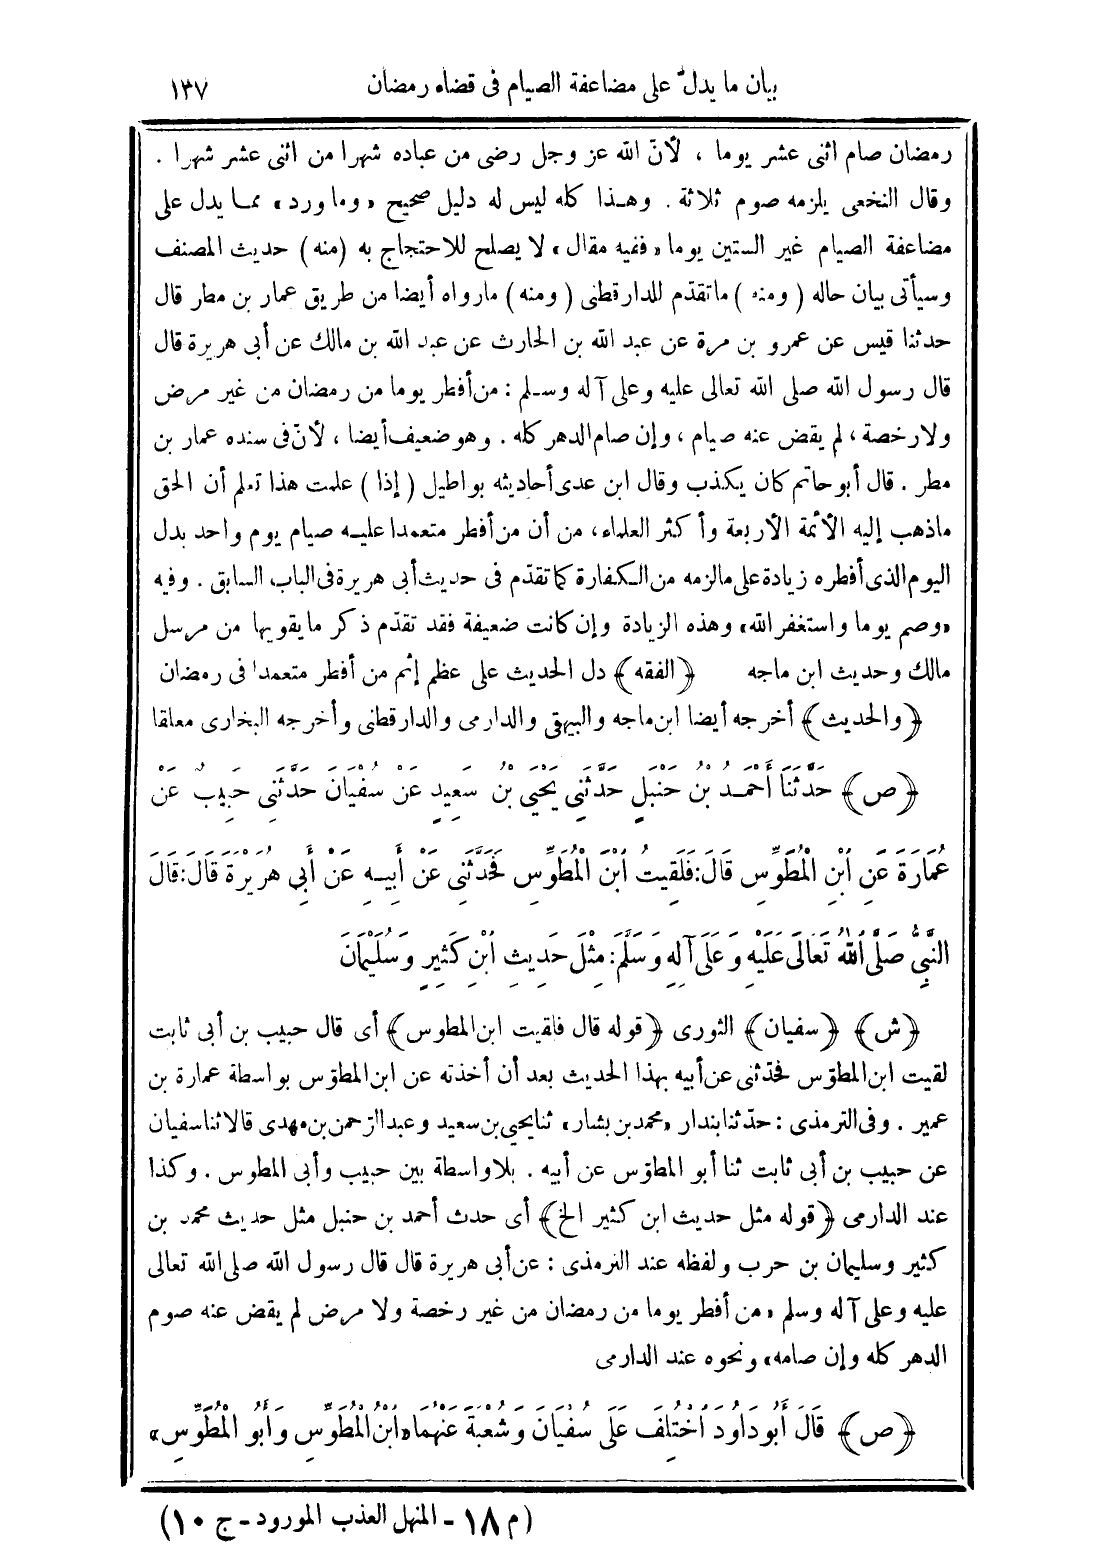 بيان ما يدلّ على مضاعفة الصيام فى قضاء رمضان ١٣٧
رمضان صام اثنى عشر يوما ، لأنّ الله عز وجل رضى من عباده شهرا من اثنى عشر شهرا .
وقال النخعى يلزمه صوم ثلاثة . وهذا كله ليس له دليل صحيح «وما ورد» مما يدل على
مضاعفة الصيام غير الستين يوما «ففيه مقال» لا يصلح للاحتجاج به (منه) حديث المصنف
وسيأتى بيان حاله (ومنه) ما تقدّم للدارقطنى (ومنه) مارواه أيضا من طريق عمار بن مطر قال
حدثنا قيس عن عمرو بن مرة عن عبد الله بن الحارث عن عبد الله بن مالك عن أبى هريرة قال
قال رسول الله صلى الله تعالى عليه وعلى آله وسلم : من أفطر يوما من رمضان من غير مرض
ولارخصة ، لم يقض عنه صيام ، وإن صام الدهر كله . وهو ضعيف أيضا ، لأنّ فى سنده عمار بن
مطر . قال أبو حاتم كان يكذب وقال ابن عدى أحاديثه بواطيل (إذا) علمت هذا تعلم أن الحق
ماذهب إليه الأئمة الأربعة وأكثر العلماء، من أن من أفطر متعمدا عليه صيام يوم واحد بدل
اليوم الذى أفطره زيادة على مالزمه من الكفارة كما تقدّم فى حديث أبى هريرة فى الباب السابق . وفيه
«وصم يوما واستغفر الله» وهذه الزيادة وإن كانت ضعيفة فقد تقدّم ذكر ما يقويها من مرسل
مالك وحديث ابن ماجه ﴿الفقه﴾ دل الحديث على عظم إثم من أفطر متعمدا فى رمضان
﴿والحديث﴾ أخرجه أيضا ابن ماجه والبيهقى والدارمى والدارقطنى وأخرجه البخارى معلقا
﴿ص﴾ حَدَّثَنَا أَحْمَدُ بْنُ حَنْبَلٍ حَدَّثَنِي يَحْيَى بْنُ سَعِيدٍ عَنْ سُفْيَانَ حَدَّثَنِي حَبِيبٌ عَنْ
عُمَارَةَ عَنِ ابْنِ الْمُطَوِّسِ قَالَ: فَلَقِيتُ ابْنَ الْمُطَوِّسِ فَحَدَّثَنِي عَنْ أَبِيهِ عَنْ أَبِي هُرَيْرَةَ قَالَ: قَالَ
النَّبِيُّ صَلَّى اللهُ تَعَالَى عَلَيْهِ وَعَلَى آلِهِ وَسَلَّمَ: مِثْلَ حَدِيثِ ابْنِ كَثِيرٍ وَسُلَيْمَانَ
﴿ش﴾ ﴿سفيان﴾ الثورى ﴿قوله قال فلقيت ابن المطوس﴾ أى قال حبيب بن أبى ثابت
لقيت ابن المطوّس فحدّثنى عن أبيه بهذا الحديث بعد أن أخذته عن ابن المطوّس بواسطة عمارة بن
عمير . وفى الترمذى : حدّثنا بندار «محمد بن بشار» ثنا يحيى بن سعيد وعبد الرّحمن بن مهدى قالا ثنا سفيان
عن حبيب بن أبى ثابت ثنا أبو المطوّس عن أبيه . بلا واسطة بين حبيب وأبى المطوس . وكذا
عند الدارمى ﴿قوله مثل حديث ابن كثير الخ﴾ أى حدث أحمد بن حنبل مثل حديث محمد بن
كثير وسليمان بن حرب ولفظه عند الترمذى : عن أبى هريرة قال قال رسول الله صلى الله تعالى
عليه وعلى آله وسلم «من أفطر يوما من رمضان من غير رخصة ولا مرض لم يقض عنه صوم
الدهر كله وإن صامه» ونحوه عند الدارمى
﴿ص﴾ قَالَ أَبُو دَاوُدَ اخْتُلِفَ عَلَى سُفْيَانَ وَشُعْبَةَ عَنْهُمَا «ابْنُ الْمُطَوِّسِ وَأَبُو الْمُطَوِّسِ»
(م ١٨ - المنهل العذب المورود - ج ١٠)